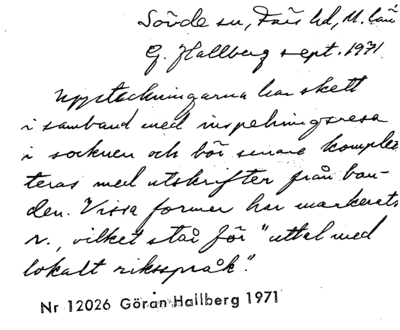 Sövde sn, Färs hd, M. län
G. Hallberg sept. 1971.
Uppteckningarna har skett
i samband med inspelningsresa
i socknen och bör senare komplet
teras med utskrifter från ban-
den. Vissa former har markerats
r., vilket står för "uttal med
lokalt riksspråk".
Nr 12026 Göran Hallberg 1971